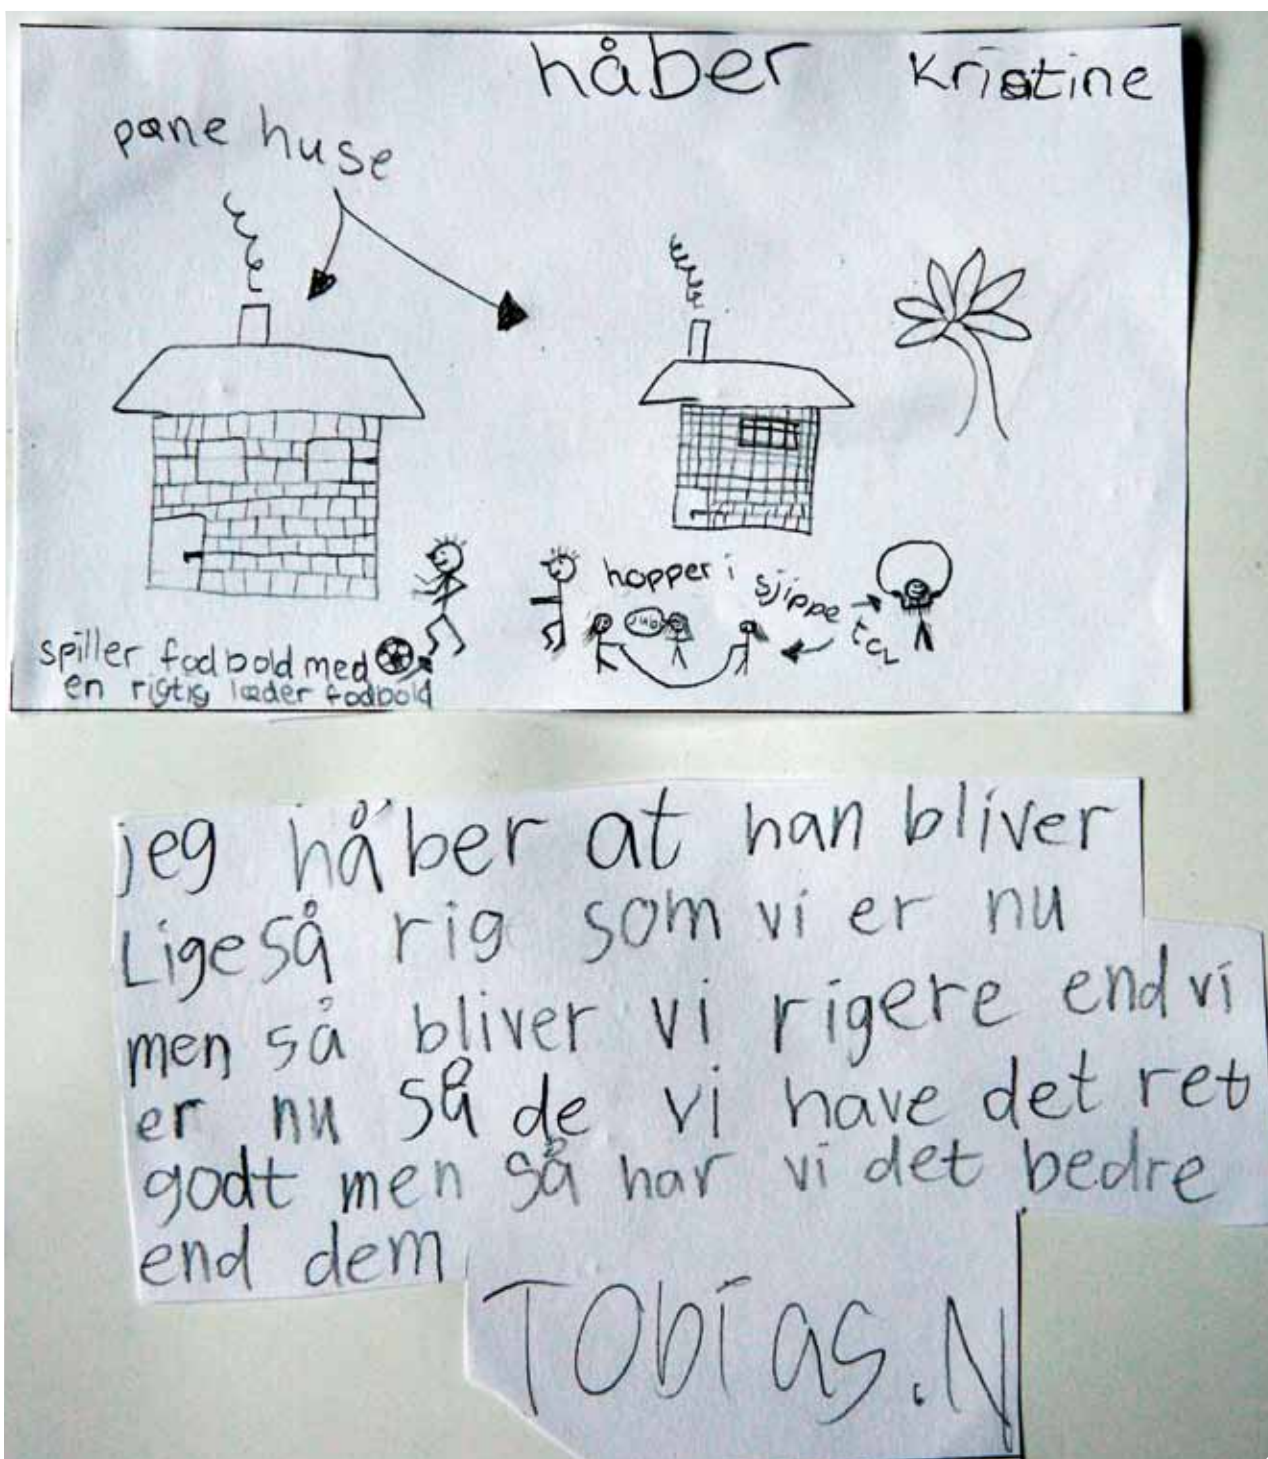 håber
Kristine
pæne huse
hopper i
sjippe
jub
spiller fodbold med
en rigtig læder fodbold
jeg håber at han bliver
Ligeså rig som vi er nu
men så bliver vi rigere end vi
er nu så de vi have det ret
godt men så har vi det bedre
end dem
TObias.N